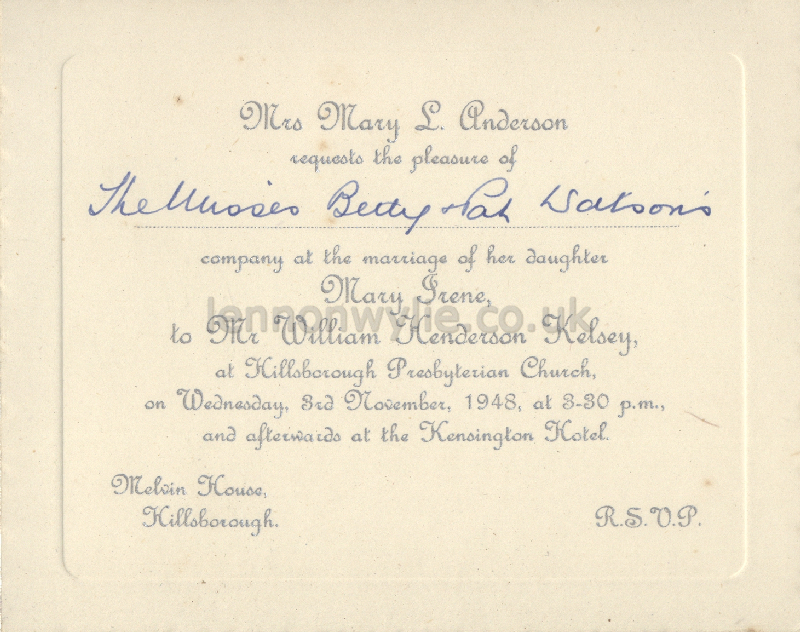 Mrs Mary L. Anderson
requests the pleasure of
The Misses Betty + Pat Watson's
company at the marriage of her daughter
Mary Irene,
lennonwylie.co.uk
to Mr William Henderson Kelsey,
at Hillsborough Presbyterian Church,
on Wednesday, 3rd November, 1948, at 3-30 p.m.,
and afterwards at the Kensington Hotel.
Melvin House,
Hillsborough.
R.S.V.P.